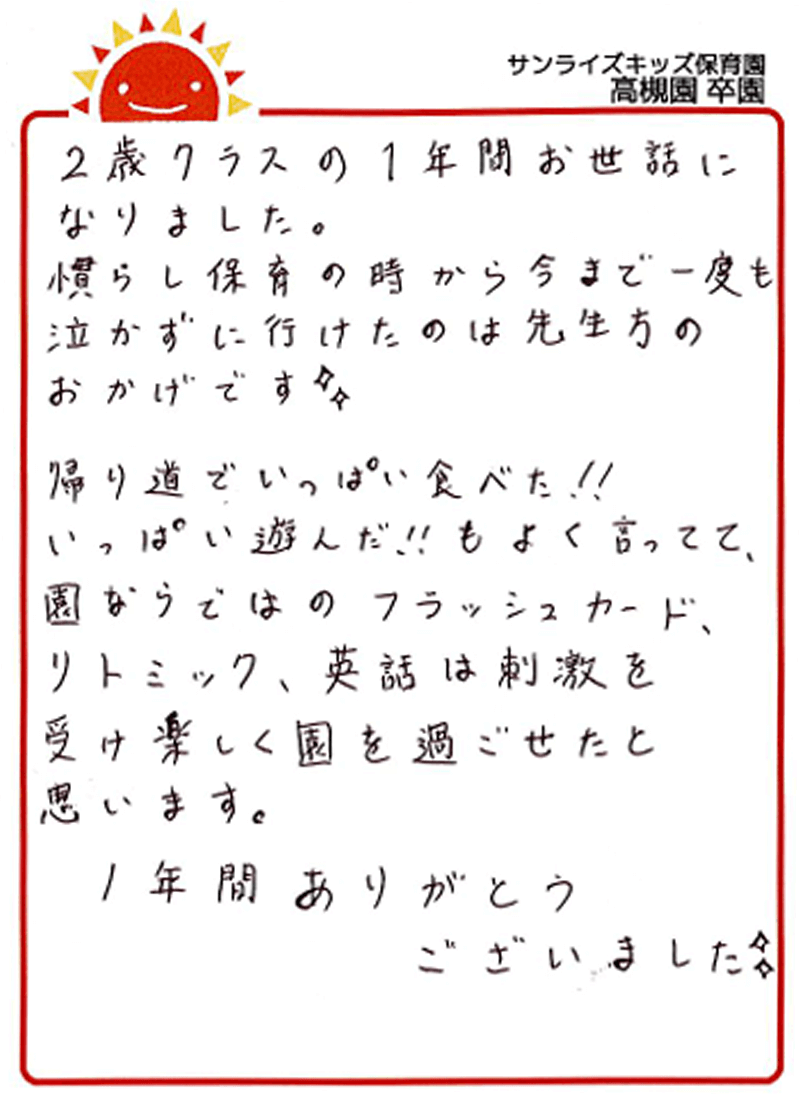 サンライズキッズ保育園
高槻園 卒園
2歳クラスの1年間お世話に
なりました。
慣らし保育の時から今まで一度も
泣かずに行けたのは先生方の
おかげです✧✧
帰り道でいっぱい食べた!!
いっぱい遊んだ!!もよく言ってて、
園ならではのフラッシュカード、
リトミック、英話は刺激を
受け楽しく園を過ごせたと
思います。
1年間ありがとう
ございました✧✧